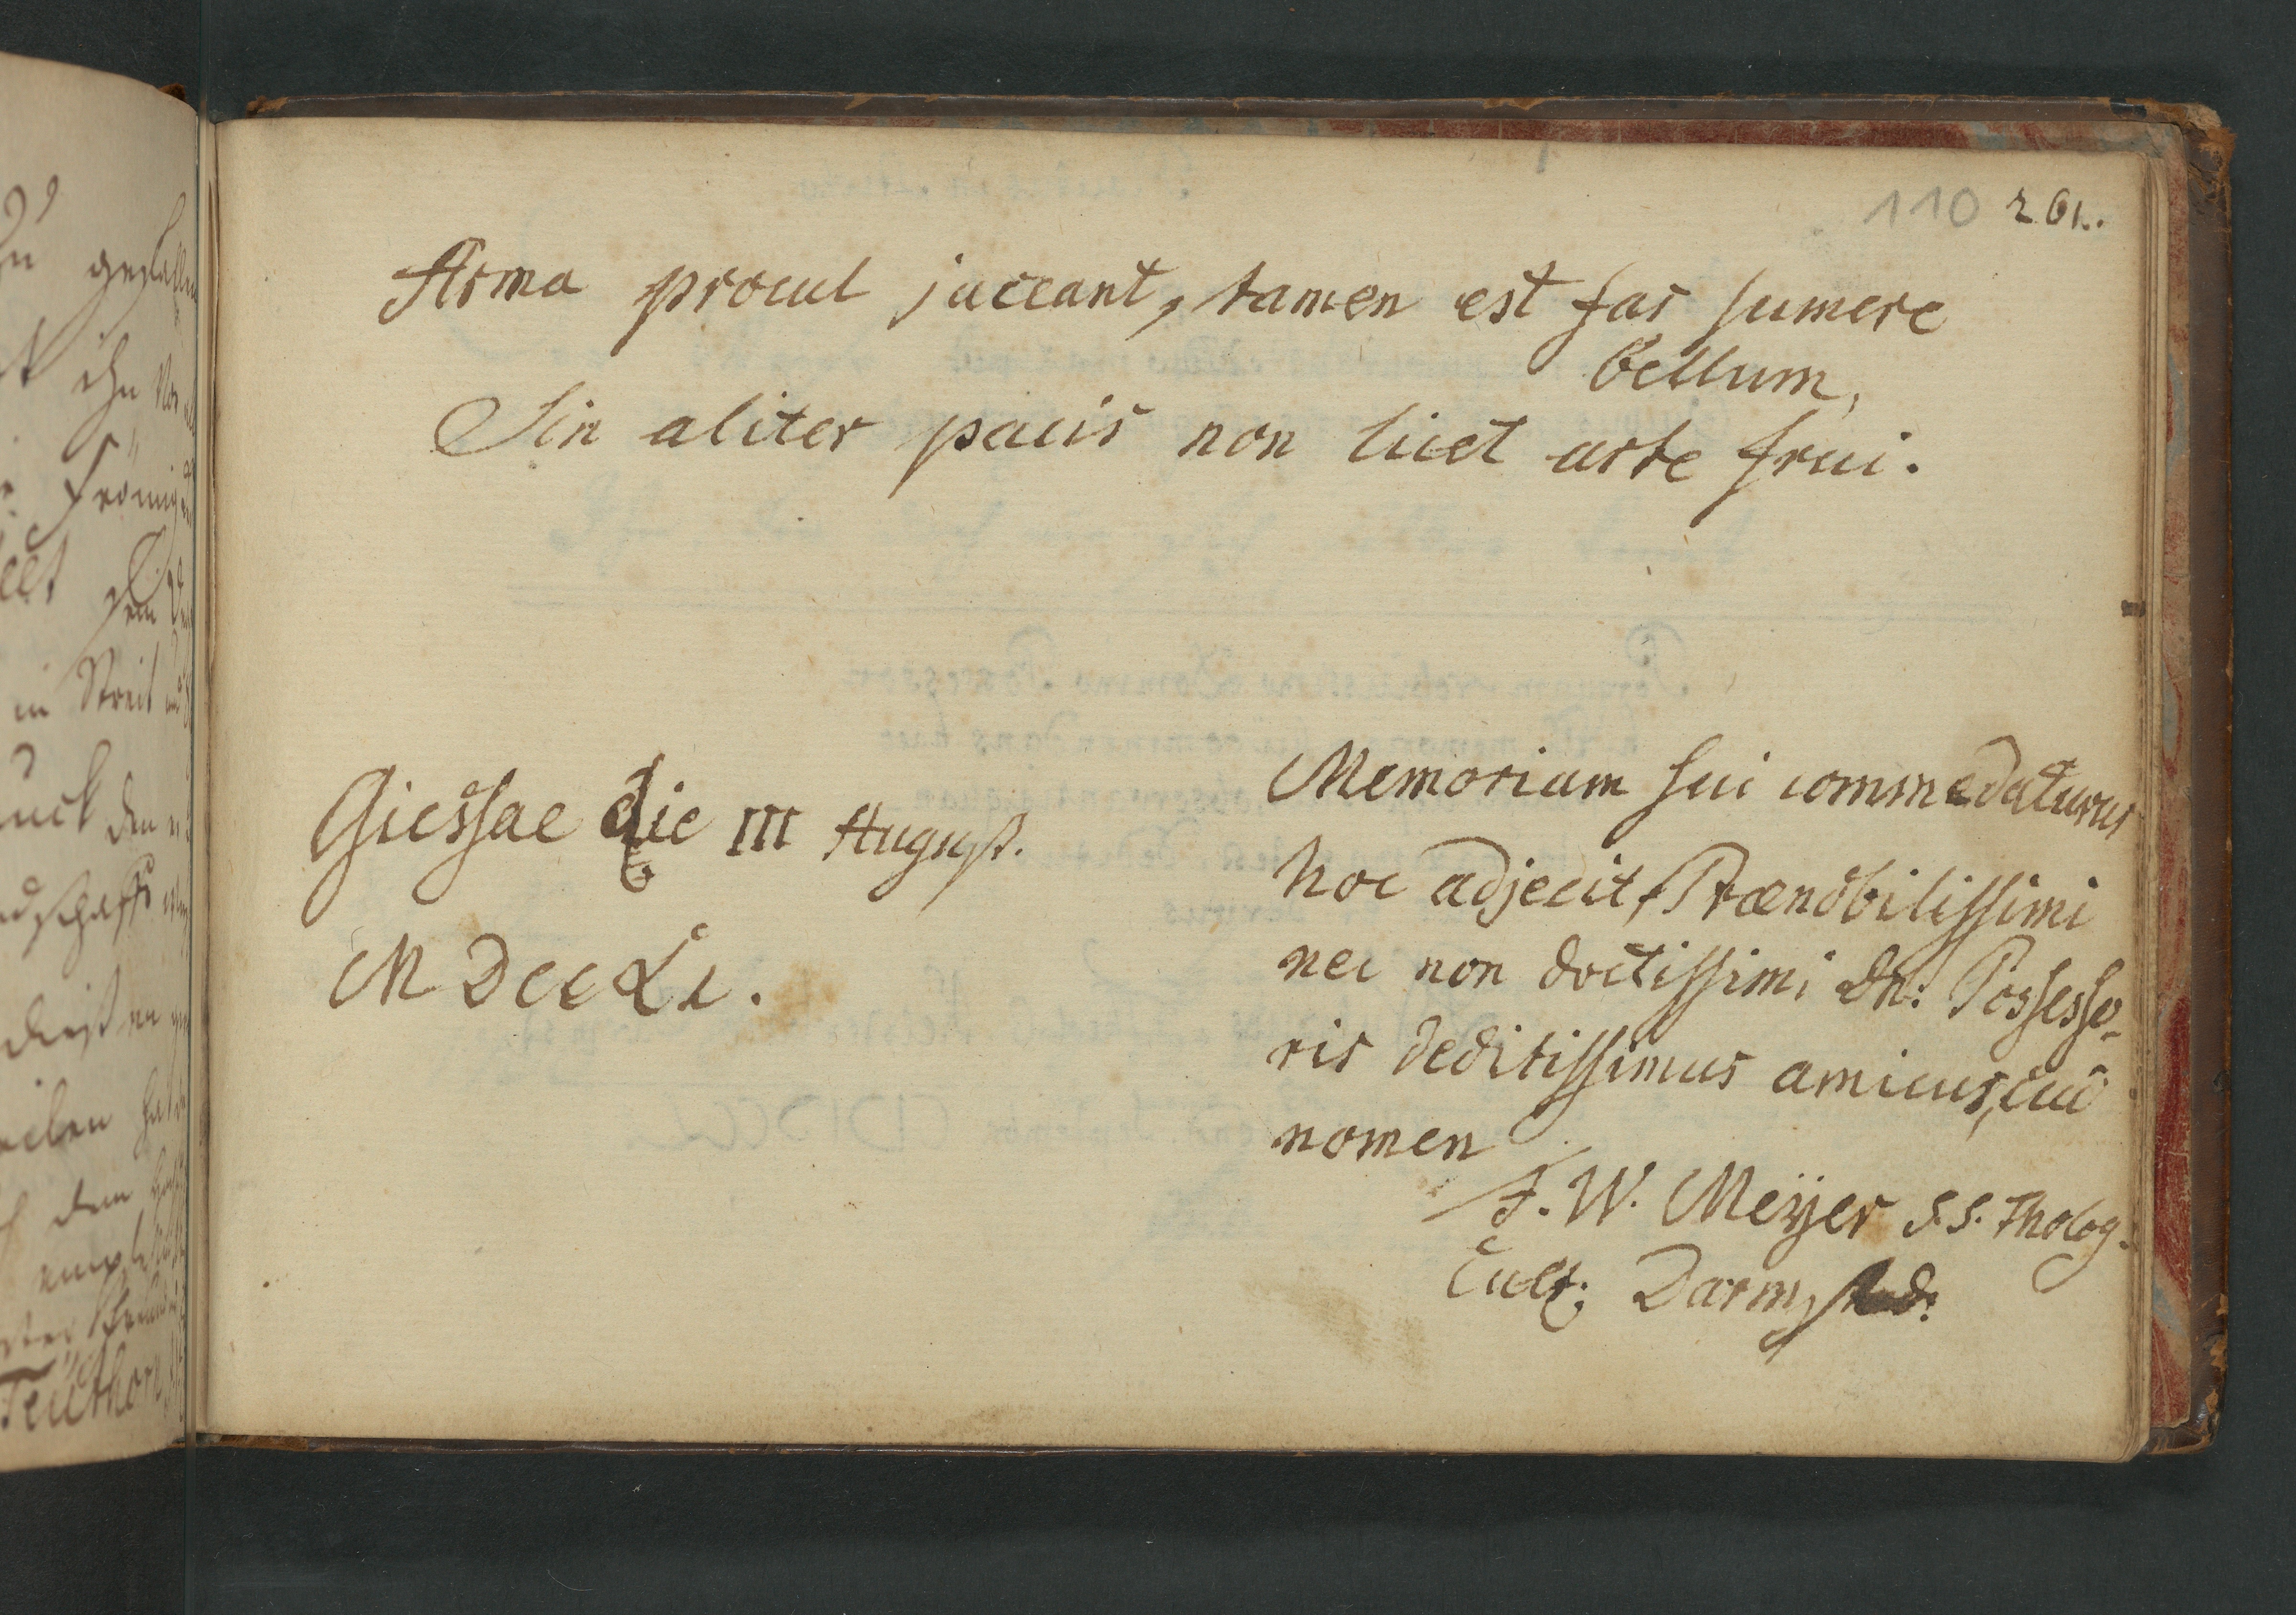 110 261.
Arma procul jaceant, tamen est fas sumere
bellum,
Sin aliter pacis non licet arte frui.
Giessae die III August.
MDCCLI.
Memoriam sui commedaturus
hoc adjecit, Praenobilissimi
nec non doctissimi Dn: Possesso-
ris deditissimus amicus, cui
nomen
F. W. Meÿer S.S. Tholog.
Cult; Darmstad: